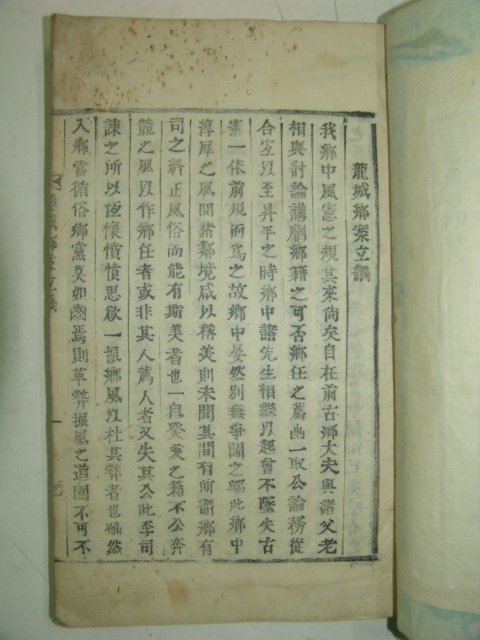 龍城鄉案立議
我鄉中風憲之規其來尙矣自在前古鄉大夫與諸父老
相與討論講劘鄉籍之可否鄉任之薦畫一取公論務從
合宜以至昇平之時鄉中諸先生相繼以起會不墜失古
憲一依前規而爲之故鄉中晏然別無爭鬪之端此鄉中
薄厚之風聞諸鄰境咸以稱美則未聞其間有所謂鄉有
司之糾正風俗而能有斯美者也一自癸亥之籍不公奔
競之風以作鄉任者或非其人薦人者又失其公此李司
諫之所以恆懷憤憤思欲一振鄉風以杜其弊者也雖然
入鄉當循俗鄉黨莫如齒焉則革弊振風之道固不可不
龍城鄉案立議
一